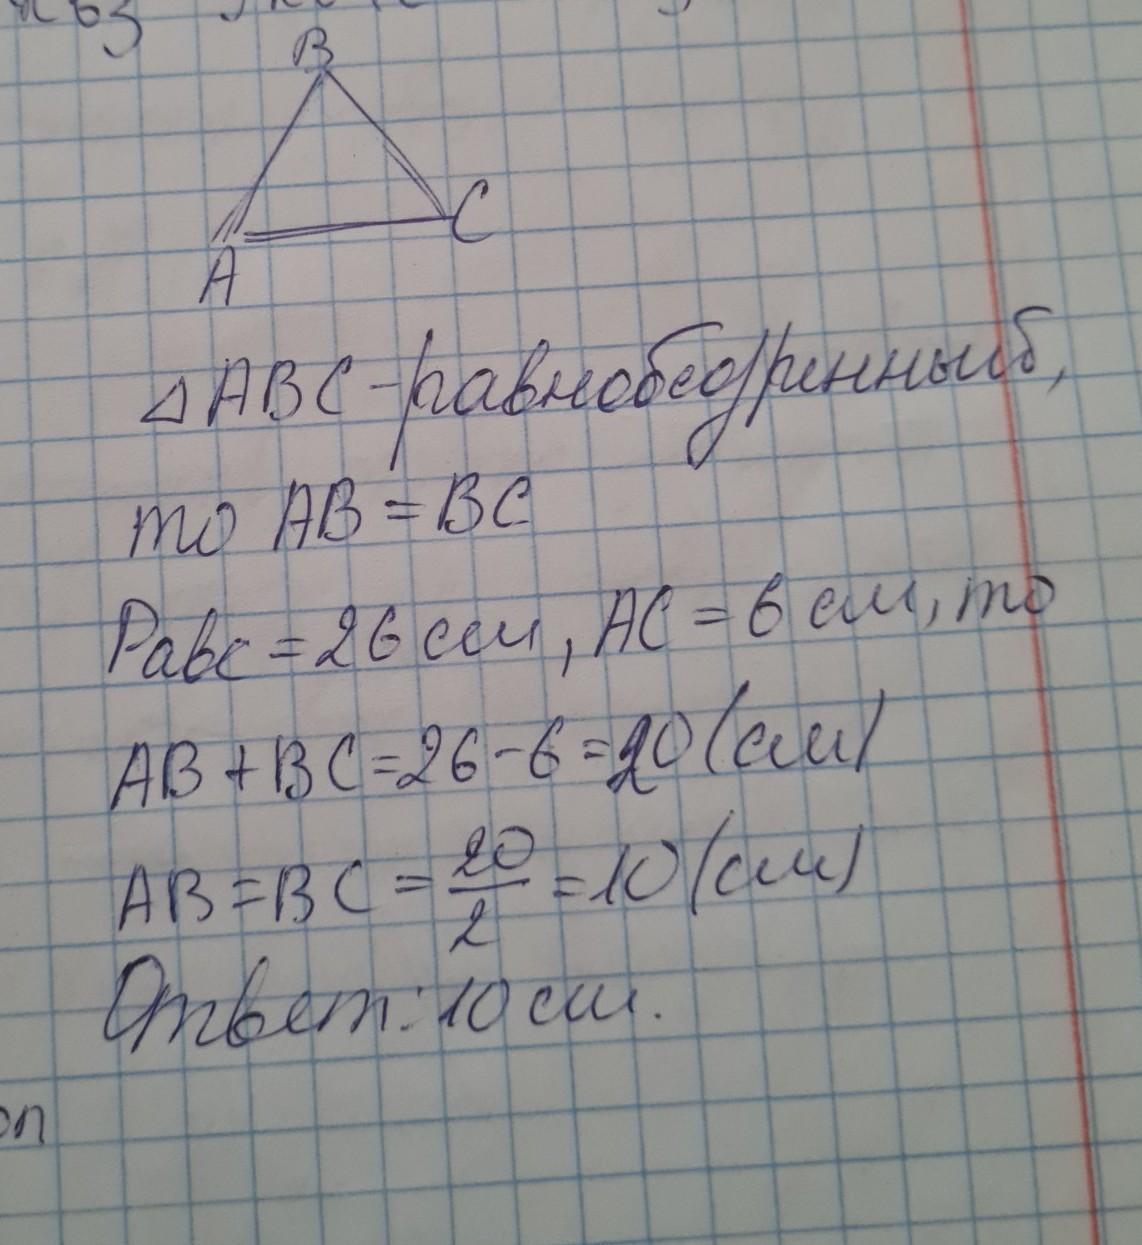 B
C
A
△ABC-равнобедринный,
то AB=BC
Pавс=26 см, AC=6 см, то
AB+BC=26-6=20(см)
AB=BC=20/2=10(см)
Ответ: 10 см.